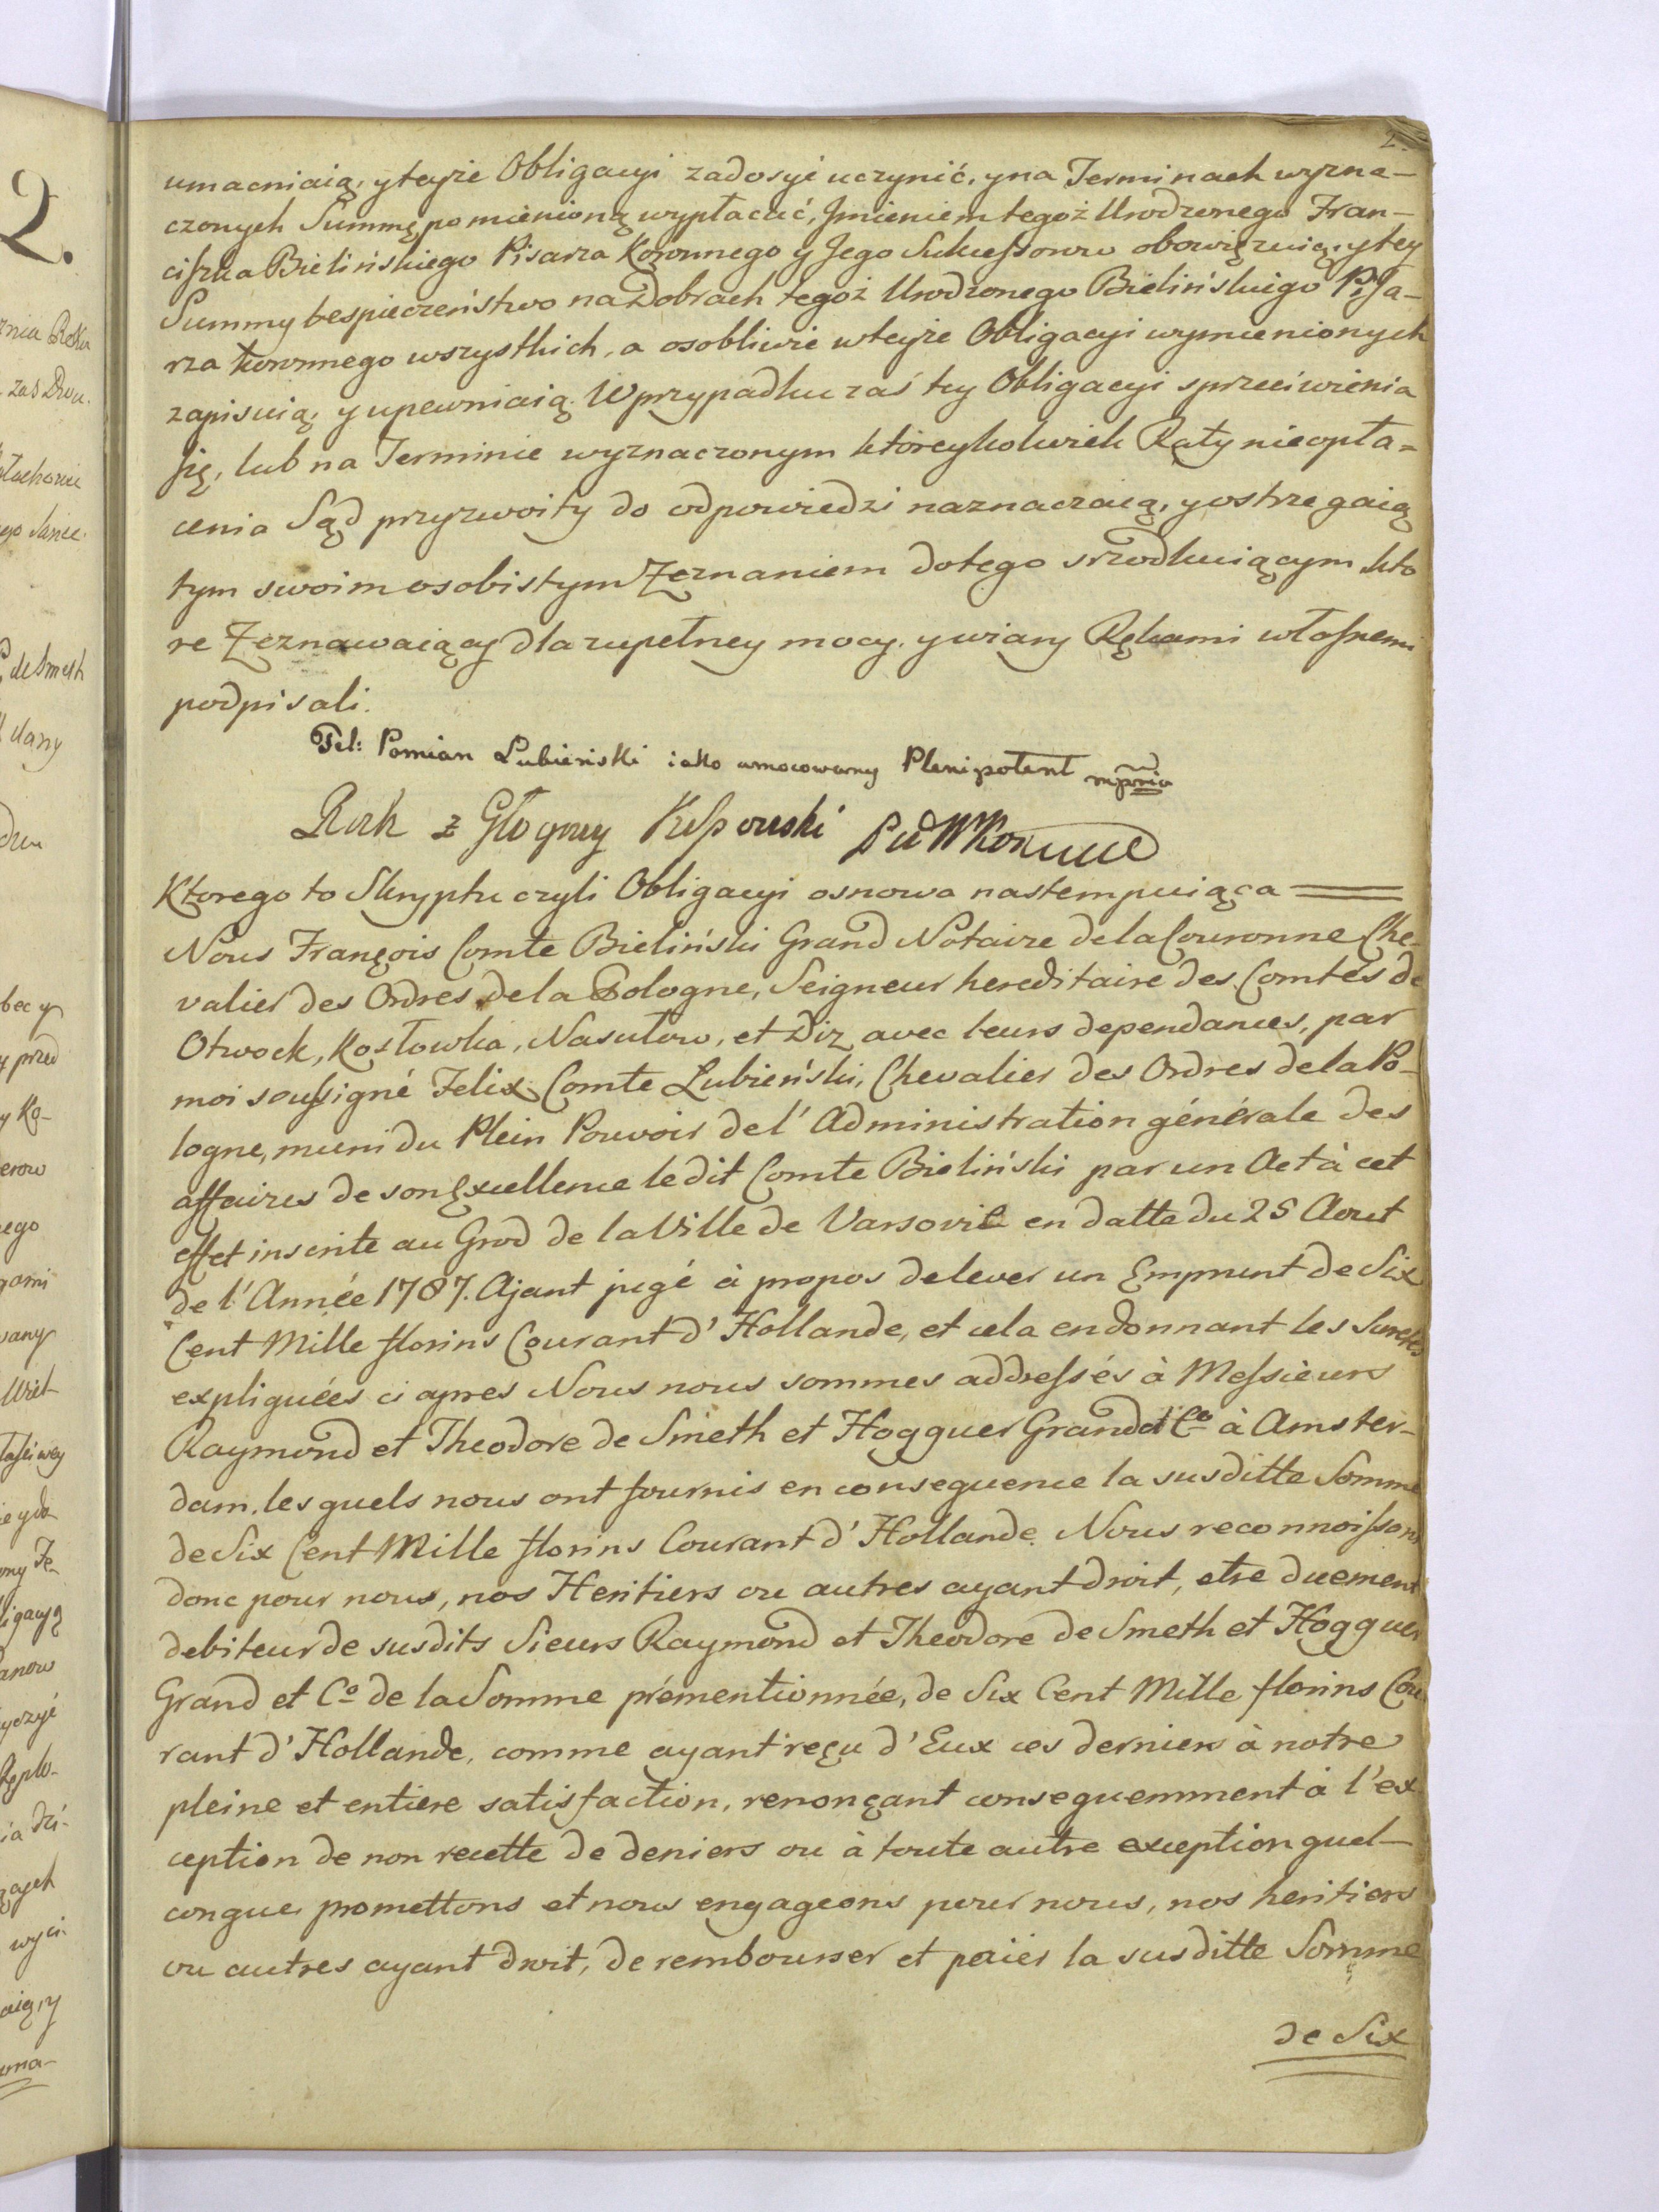 2.
umacniaią, y teyże Obligacyi zadosyć uczynić, y na Terminach wyzna-
czonych Summę pomienioną wypłacać, Jmieniem tegoż Urodzonego Fran-
ciszka Bielińskiego Pisarza Koronnego y Jego Sukcessorow obowięzuią, y tey
Summy bespieczeństwo na Dobrach tegoż Urodzonego Bielińskiego Pisa-
rza Koronnego wszystkich, a osobliwie w teyże Obligacyi wymienionych
zapisuią, y upewniaią. W przypadku zaś tey Obligacyi sprzeciwienia
się, lub na Terminie wyznaczonym ktoreykolwiek Raty nieopła-
cenia Sąd przyzwoity do odpowiedzi naznaczaią, y ostrzegaią
tym swoim osobistym Zeznaniem do tego srzodkuiącym kto
re Zeznawaiący dla zupełney mocy, y wiary Rękami własnemi
podpisali.
Fel: Pomian Lubieński iako umocowany Plenipotent mpria
Rok z Głogowy Kossowski
Ktorego to Skryptu czyli Obligacyi osnowa nastempuiąca
Nous François Comte Bieliński Grand Notaire de la Couronne Che-
valier des Ordres de la Pologne, Seigneur hereditaire des Comtés de
Otwock, Kozłowka, Nasutow, et Diz avec leurs dependances, par
moi soussigné Felix Comte Lubieński, Chevalier des Ordres de la Po-
logne, muni du Plein Pouvoir de l'Administration générale des
affaires de son Excellence le dit Comte Bieliński par un Act à cet
effet inscrite au Grod de la Ville de Varsovie en datte du 25 Aout
de l'Année 1787. Ajant jugé à propos de lever un Emprunt de Six
Cent Mille florins Courant d'Hollande, et cela en donnant les Suretés
expliquées ci apres Nous nous sommes addressés à Messieurs
Raymond et Theodore de Smeth et Hogguer Grand et Co à Amster-
dam, les quels nous ont fournis en consequence la susditte Somme
de Six Cent Mille florins Courant d'Hollande. Nous reconnoissons
donc pour nous, nos Heritiers ou autres ayant droit, etre duement
debiteur de susdits Sieurs Raymond et Theodore de Smeth et Hogguer
Grand et Co de la Somme prémentionnée, de Six Cent Mille florins Cou
rant d'Hollande, comme ayant reçu d'Eux ces derniers à notre
pleine et entiere satisfaction, renonçant consequemment à l'ex
ception de non recette de deniers ou à toute autre exception quel-
conque, promettons et nous engageons pour nous, nos heritiers
ou autres ayant droit, de rembourser et paier la susditte Somme
de Six